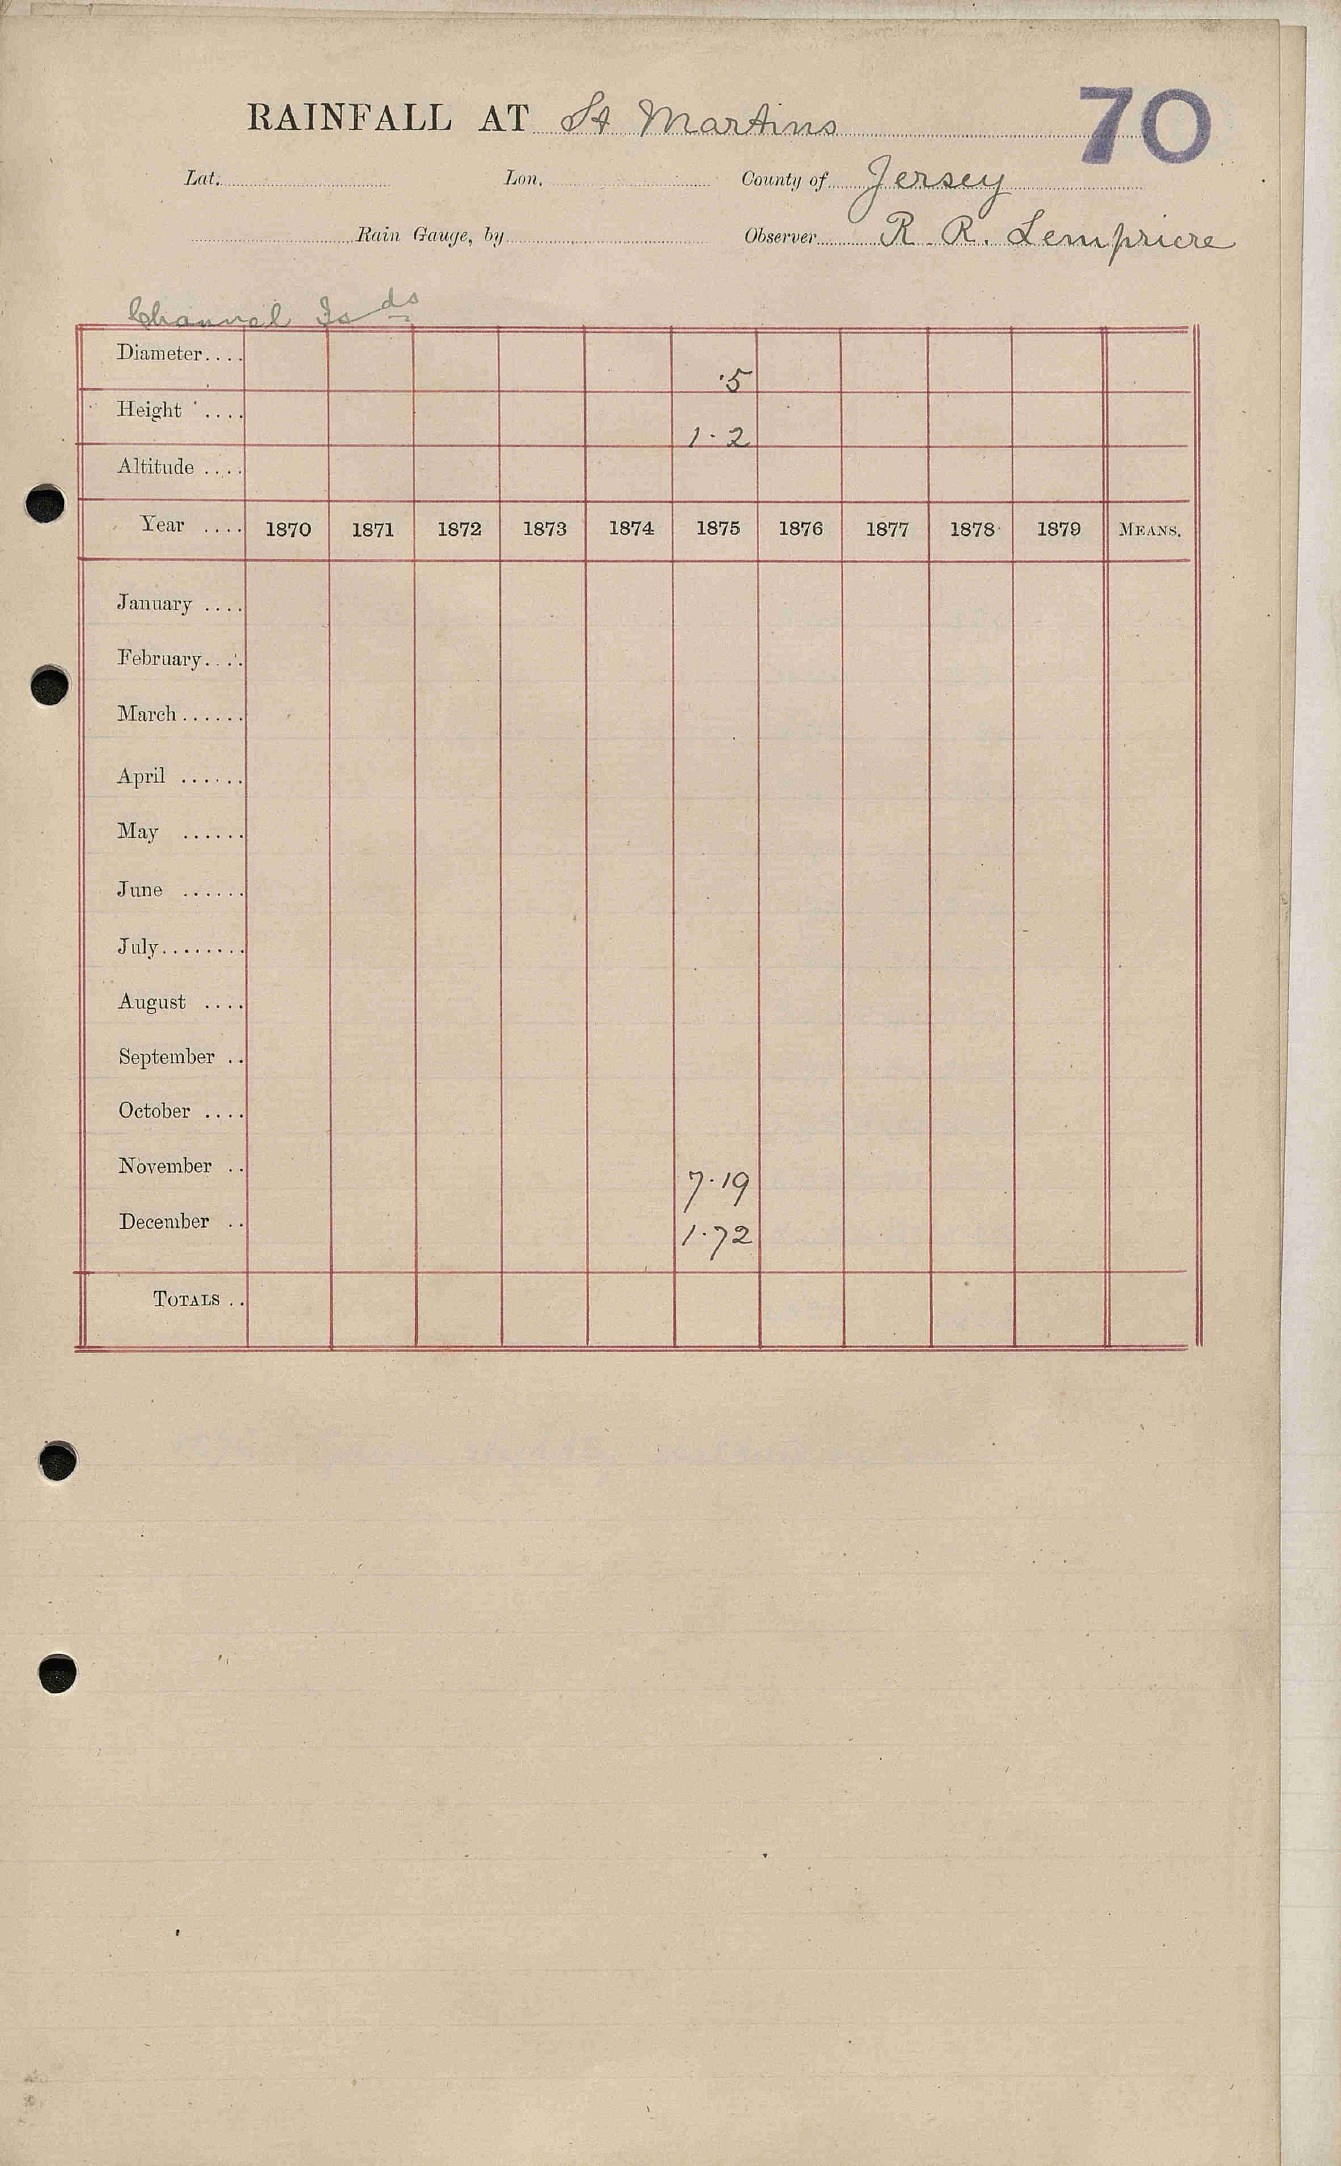 RAINFALL AT St Martins 70
Lat. Lon. County of Jersey
Rain Gauge, by Observer R. R. Lempriere
Channel Isds
Diameter.... ·5
Height .... 1·2
Altitude ....
Year .... 1870 1871 1872 1873 1874 1875 1876 1877 1878 1879 MEANS.
January ....
February....
March......
April ......
May ......
June ......
July........
August ....
September ..
October ....
November .. 7·19
December .. 1·72
TOTALS ..